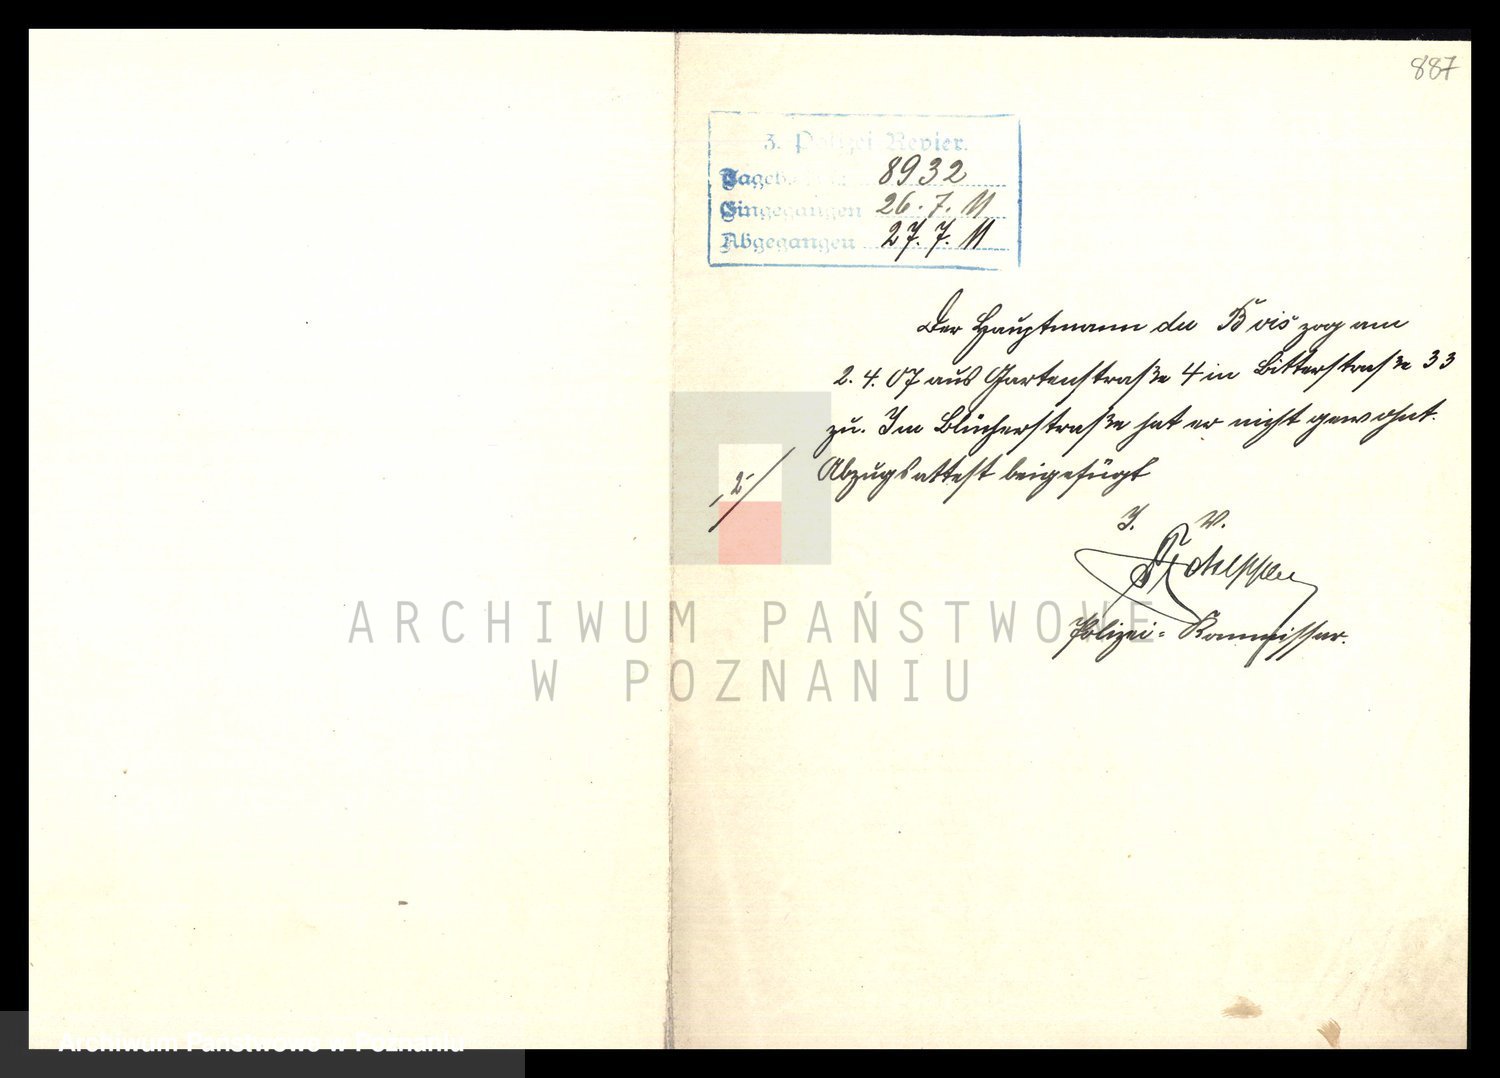 887
3. Polizei Revier.
Tageb. 8932
Eingegangen 26. 7. 11
Abgegangen 27. 7. 11
Der Hauptmann du Bois zog am
2. 4. 07 aus Gartenstraße 4 in Ritterstraße 33
zu. In Blücherstraße hat er nicht gewohnt.
Abzugsattest beigefügt
2
I. V.
Polizei-Kommissar.
ARCHIWUM PAŃSTWOWE
W POZNANIU
Archiwum Państwowe w Poznaniu